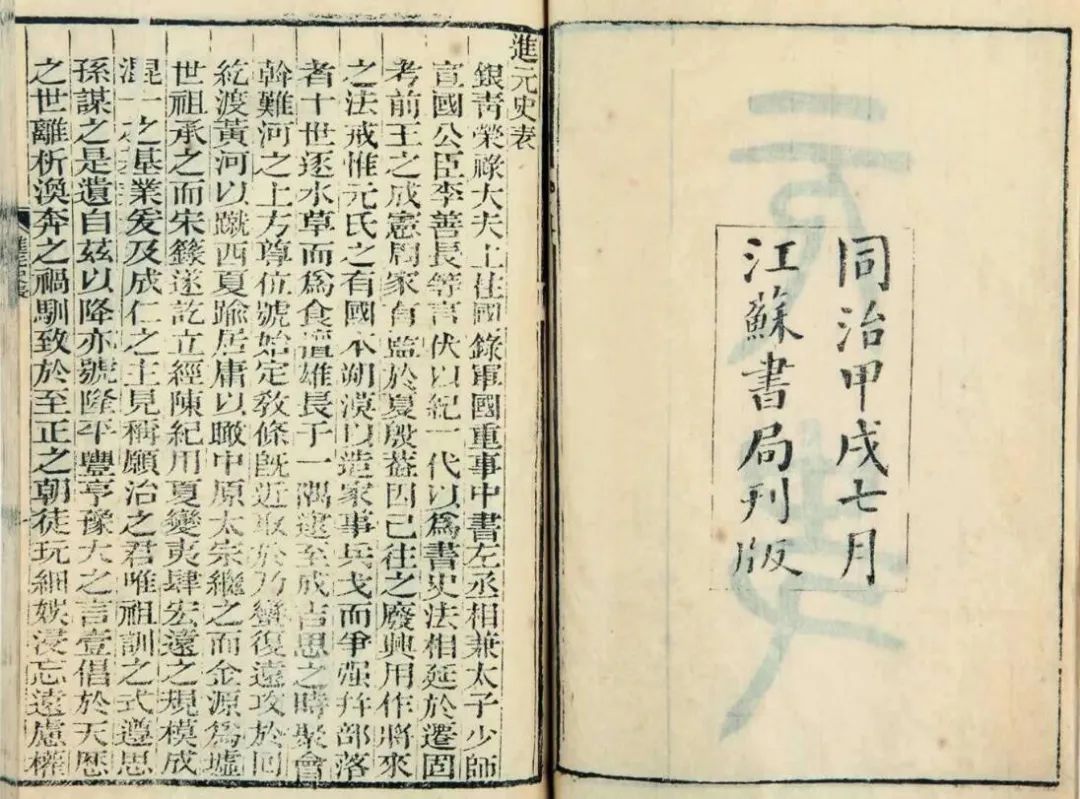 同治甲戌七月
江蘇書局刊版
進元史表
銀靑榮祿大夫上柱國錄軍國重事中書左丞相兼太子少師
宣國公臣李善長等言伏以紀一代以爲書史法相延於遷固
考前王之成憲周家有監於夏殷葢因已往之廢興用作將來
之法戒惟元氏之有國本朔漠以造家事兵戈而爭强幷部落
者十世逐水草而爲食擅雄長于一隅逮至成吉思之時聚會
斡難河之上方尊位號始定敎條旣近取於乃蠻復遠攻於回
紇渡黃河以蹴西夏踰居庸以瞰中原太宗繼之而金源爲墟
世祖承之而宋籙遂訖立經陳紀用夏變夷肆宏遠之規模成
混一之基業爰及成仁之主見稱願治之君唯祖訓之式遵思
孫謀之是遺自茲以降亦號隆平豐亨豫大之言壹倡於天厯
之世離析渙奔之禍馴致於至正之朝徒玩細娛浸忘遠慮權